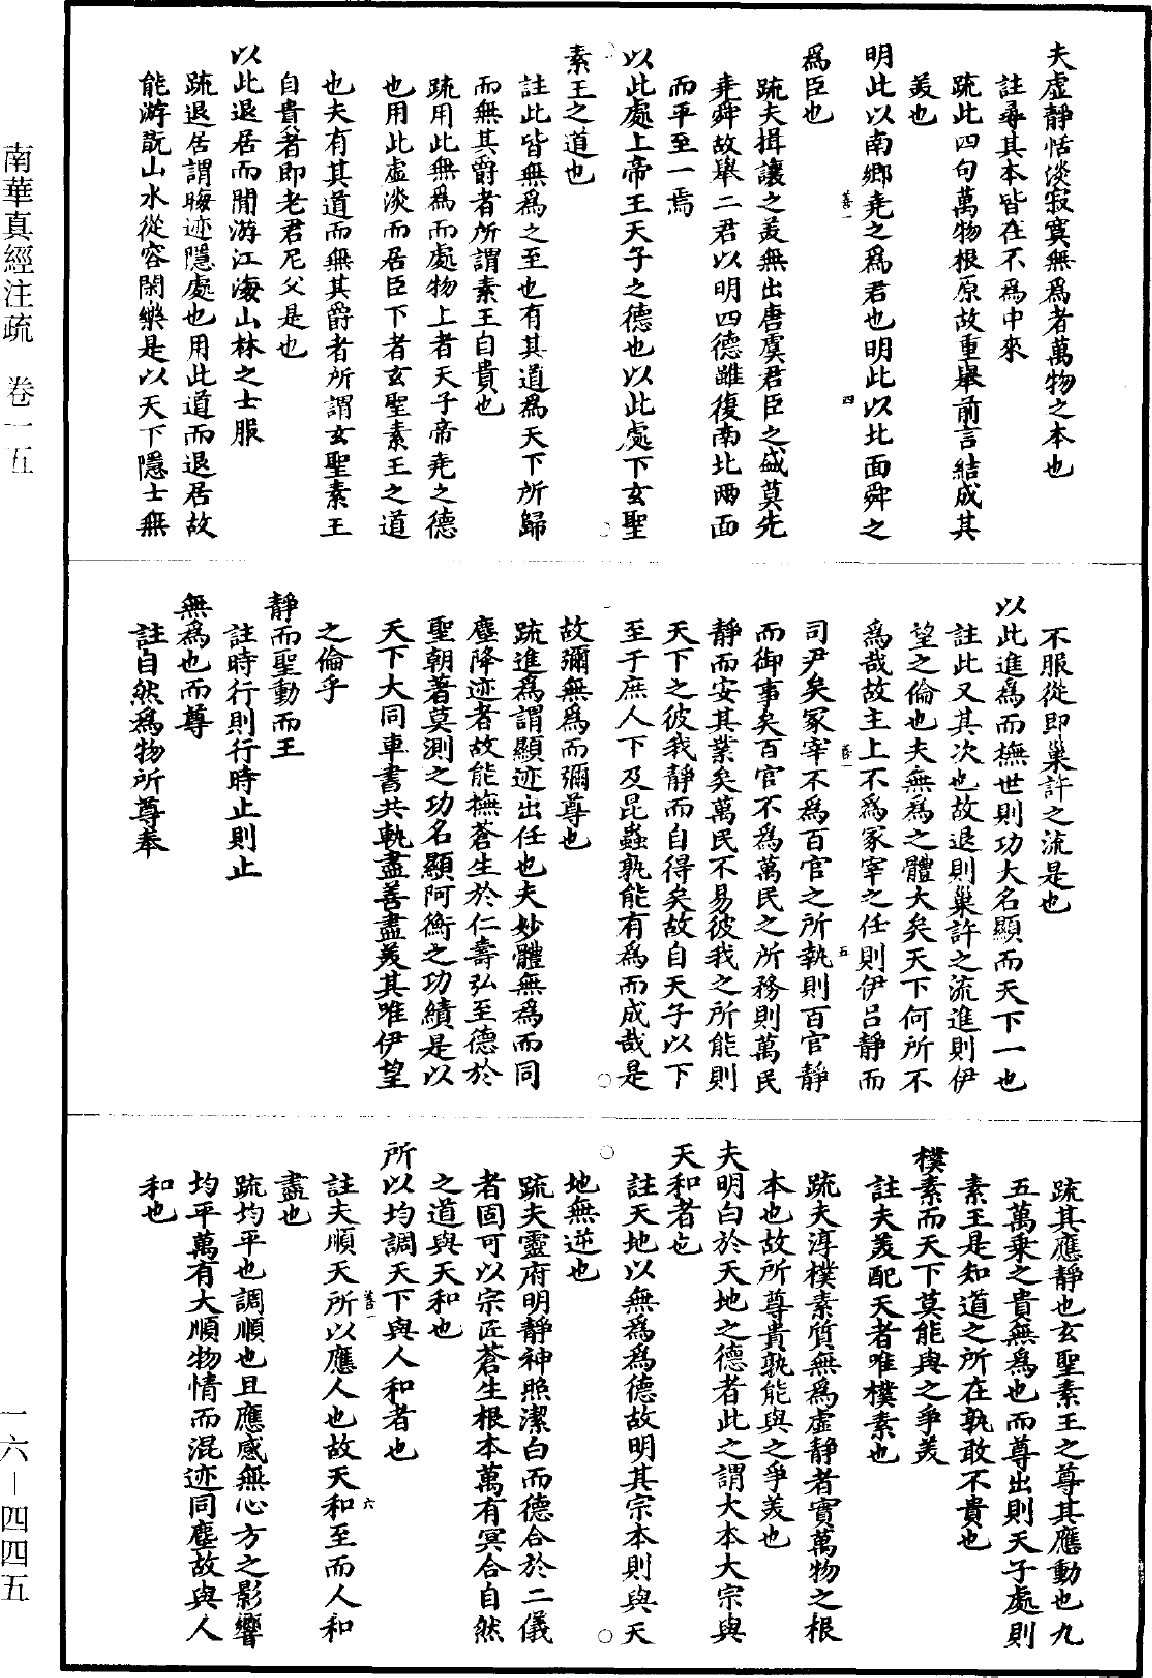 夫虛靜恬淡寂寞無爲者萬物之本也
註尋其本皆在不爲中來
疏此四句萬物根原故重舉前言結成其
美也
明此以南鄉堯之爲君也明此以北面舜之
爲臣也
疏夫揖讓之美無出唐虞君臣之盛莫先
堯舜故舉二君以明四德雖復南北兩面
而平至一焉
以此處上帝王天子之德也以此處下玄聖
素王之道也
註此皆無爲之至也有其道爲天下所歸
而無其爵者所謂素王自貴也
疏用此無爲而處物上者天子帝堯之德
也用此虛淡而居臣下者玄聖素王之道
也夫有其道而無其爵者所謂玄聖素王
自貴者即老君尼父是也
以此退居而閒游江海山林之士服
疏退居謂晦迹隱處也用此道而退居故
能游翫山水從容閑樂是以天下隱士無
不服從即巢許之流是也
以此進爲而撫世則功大名顯而天下一也
註此又其次也故退則巢許之流進則伊
望之倫也夫無爲之體大矣天下何所不
爲哉故主上不爲冢宰之任則伊呂靜而
司尹矣冢宰不爲百官之所執則百官靜
而御事矣百官不爲萬民之所務則萬民
靜而安其業矣萬民不易彼我之所能則
天下之彼我靜而自得矣故自天子以下
至于庶人下及昆蟲孰能有爲而成哉是
故彌無爲而彌尊也
疏進爲謂顯迹出任也夫妙體無爲而同
塵降迹者故能撫蒼生於仁壽弘至德於
聖朝著莫測之功名顯阿衡之功績是以
天下大同車書共軌盡善盡美其唯伊望
之倫乎
靜而聖動而王
註時行則行時止則止
無爲也而尊
註自然爲物所尊奉
疏其應靜也玄聖素王之尊其應動也九
五萬乘之貴無爲也而尊出則天子處則
素王是知道之所在孰敢不貴也
樸素而天下莫能與之爭美
註夫美配天者唯樸素也
疏夫淳樸素質無爲虛靜者實萬物之根
本也故所尊貴孰能與之爭美也
夫明白於天地之德者此之謂大本大宗與
天和者也
註天地以無爲爲德故明其宗本則與天
地無逆也
疏夫靈府明靜神照潔白而德合於二儀
者固可以宗匠蒼生根本萬有冥合自然
之道與天和也
所以均調天下與人和者也
註夫順天所以應人也故天和至而人和
盡也
疏均平也調順也且應感無心方之影響
均平萬有大順物情而混迹同塵故與人
和也
善一
四
善一
五
善一
六
南華真經注疏 卷一五
一六－四四五